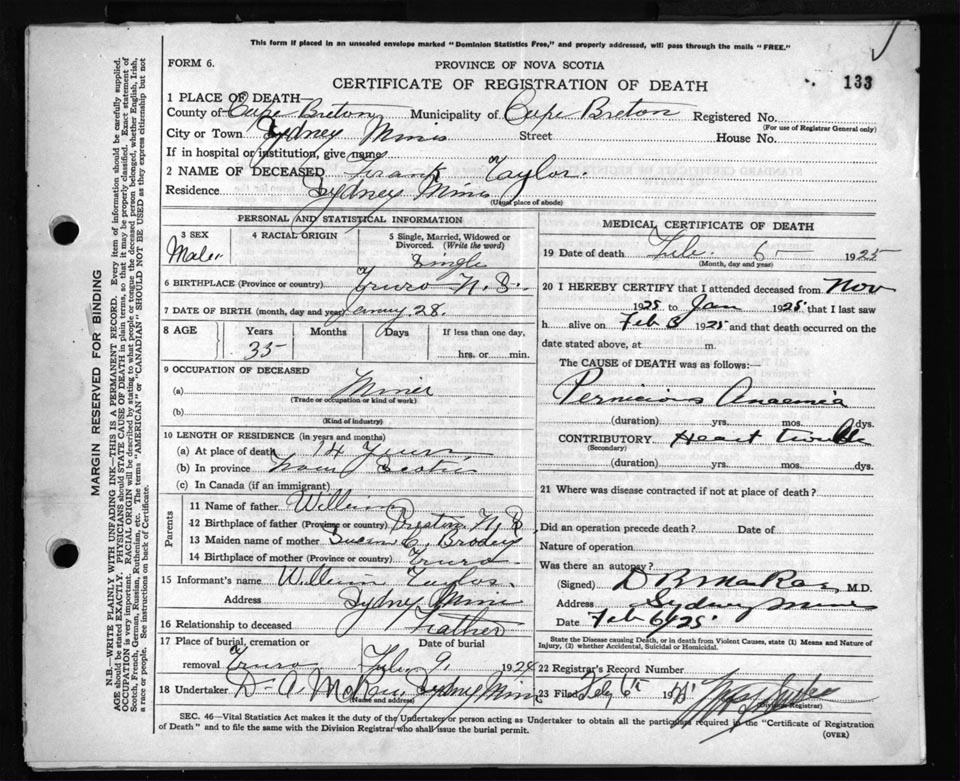 This form if placed in an unsealed envelope marked "Dominion Statistics Free," and properly addressed, will pass through the mails "FREE."
FORM 6.
PROVINCE OF NOVA SCOTIA
CERTIFICATE OF REGISTRATION OF DEATH
133
1 PLACE OF DEATH—
County of Cape Breton Municipality of Cape Breton Registered No.
(For use of Registrar General only)
City or Town Sydney Mines Street House No.
If in hospital or institution, give name
2 NAME OF DECEASED Frank Taylor.
Residence Sydney Mines
(Usual place of abode)
PERSONAL AND STATISTICAL INFORMATION
3 SEX Male
4 RACIAL ORIGIN
5 Single, Married, Widowed or Divorced. (Write the word) Single
6 BIRTHPLACE (Province or country) Truro N.S.
7 DATE OF BIRTH (month, day and year) 28.
8 AGE Years Months Days If less than one day,
35 hrs. or min.
9 OCCUPATION OF DECEASED
(a) Miner
(Trade or occupation or kind of work)
(b)
(Kind of industry)
10 LENGTH OF RESIDENCE (in years and months)
(a) At place of death 14 Years
(b) In province Nova Scotia
(c) In Canada (if an immigrant)
Parents
11 Name of father William
12 Birthplace of father (Province or country) Preston N.S.
13 Maiden name of mother
14 Birthplace of mother (Province or country) Truro
15 Informant's name William Taylor.
Address Sydney Mines
16 Relationship to deceased Father
17 Place of burial, cremation or
removal Truro. Feby 9 1925
18 Undertaker Sydney Mines
(Name and address)
MEDICAL CERTIFICATE OF DEATH
19 Date of death Feb. 6 1925
(Month, day and year)
20 I HEREBY CERTIFY that I attended deceased from Nov
1925 to Jan 1925 that I last saw
h alive on Feb 1925 and that death occurred on
date stated above, at m.
The CAUSE of DEATH was as follows:
Pernicious Anaemia
(duration) yrs. mos. dys.
CONTRIBUTORY Heart trouble
(Secondary)
(duration) yrs. mos. dys.
21 Where was disease contracted if not at place of death?
Did an operation precede death? Date of
Nature of operation
Was there an autopsy?
(Signed) M.D.
Address Sydney Mines
Date Feb 6/25
State the Disease causing Death, or in death from Violent Causes, state (1) Means and Nature of Injury, (2) whether Accidental, Suicidal or Homicidal.
22 Registrar's Record Number
23 Filed Feby 6th 19
(Division Registrar)
SEC. 46—Vital Statistics Act makes it the duty of the Undertaker or person acting as Undertaker to obtain all the particulars required in the "Certificate of Registration
of Death" and to file the same with the Division Registrar who shall issue the burial permit.
(OVER)
MARGIN RESERVED FOR BINDING
N.B.—WRITE PLAINLY WITH UNFADING INK—THIS IS A PERMANENT RECORD. Every item of information should be carefully supplied.
AGE should be stated EXACTLY. PHYSICIANS should STATE CAUSE OF DEATH in plain terms, so that it may be properly classified. Exact statement of
OCCUPATION is very important. RACIAL ORIGIN will be described by stating to what people or tongue the deceased person belonged, whether English, Irish,
Scotch, French, German, Russian, Ruthenian, etc. The terms "AMERICAN" or "CANADIAN" SHOULD NOT BE USED as they express citizenship but not
a race or people. See instructions on back of Certificate.